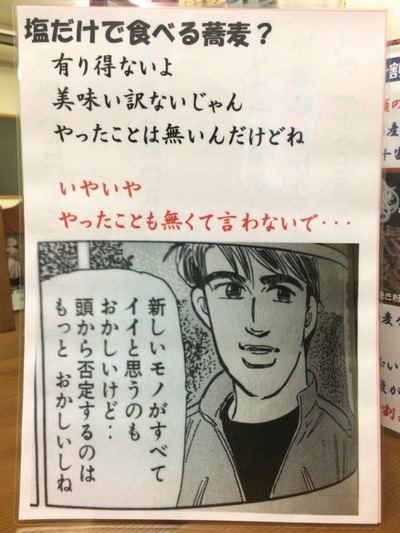 塩だけで食べる蕎麦？
有り得ないよ
美味い訳ないじゃん
やったことは無いんだけどね
いやいや
やったことも無くて言わないで・・・
新しいモノがすべて
イイと思うのも
おかしいけど‥
頭から否定するのは
もっと おかしいしね